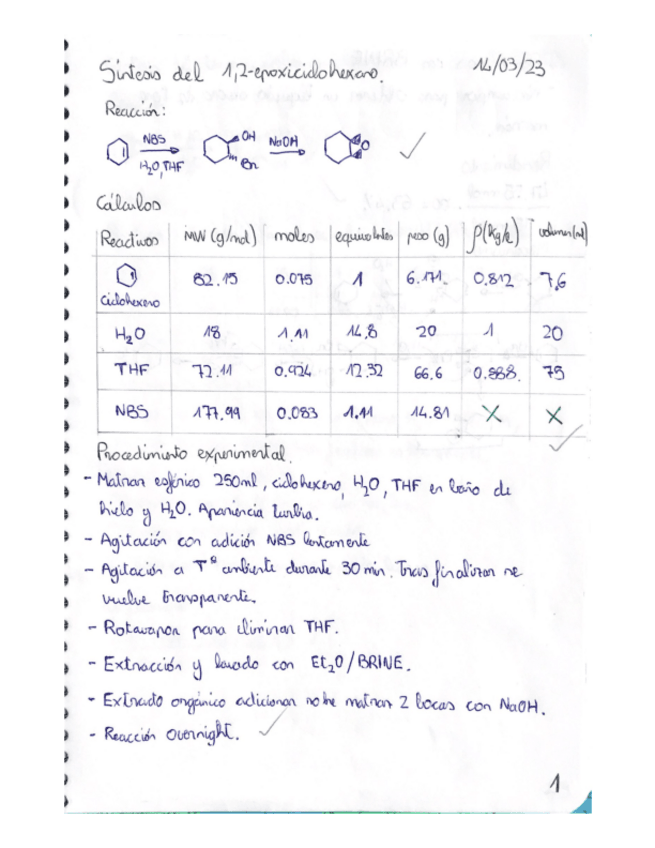 Síntesis del 1,2-epoxiciclohexano. 14/03/23
Reacción:
NBS OH NaOH
H2O, THF Br O
Cálculos
Reactivos MW (g/mol) moles equivalentes peso (g) ρ(Kg/L) volumen (ml)
ciclohexeno 82.15 0.075 1 6.171 0.812 7,6
H2O 18 1.11 14,8 20 1 20
THF 72.11 0.924 12.32 66.6 0.888. 75
NBS 177.99 0.083 1.11 14.81 X X
Procedimiento experimental.
- Matraz esférico 250ml, ciclohexeno, H2O, THF en baño de
hielo y H2O. Apariencia turbia.
- Agitación con adición NBS lentamente
- Agitación a Tª ambiente durante 30 min. Tras finalizar se
vuelve transparente.
- Rotavapor para eliminar THF.
- Extracción y lavado con Et2O/BRINE.
- Extracto orgánico adicionar sobre matraz 2 bocas con NaOH.
- Reacción overnight.
1